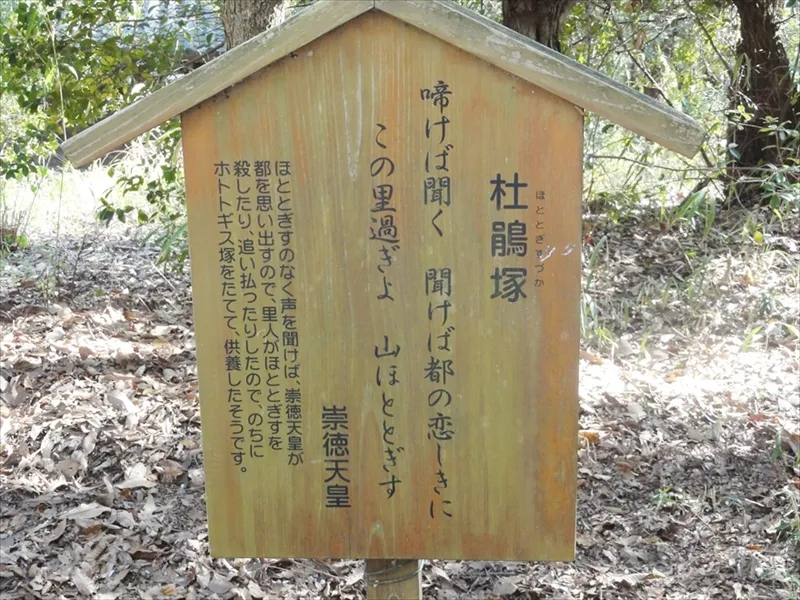 杜鵑塚
ほととぎすづか
啼けば聞く　聞けば都の恋しきに
この里過ぎよ　山ほととぎす
崇徳天皇
ほととぎすのなく声を聞けば、崇徳天皇が
都を思い出すので、里人がほととぎすを
殺したり、追い払ったりしたので、のちに
ホトトギス塚をたてて、供養したそうです。